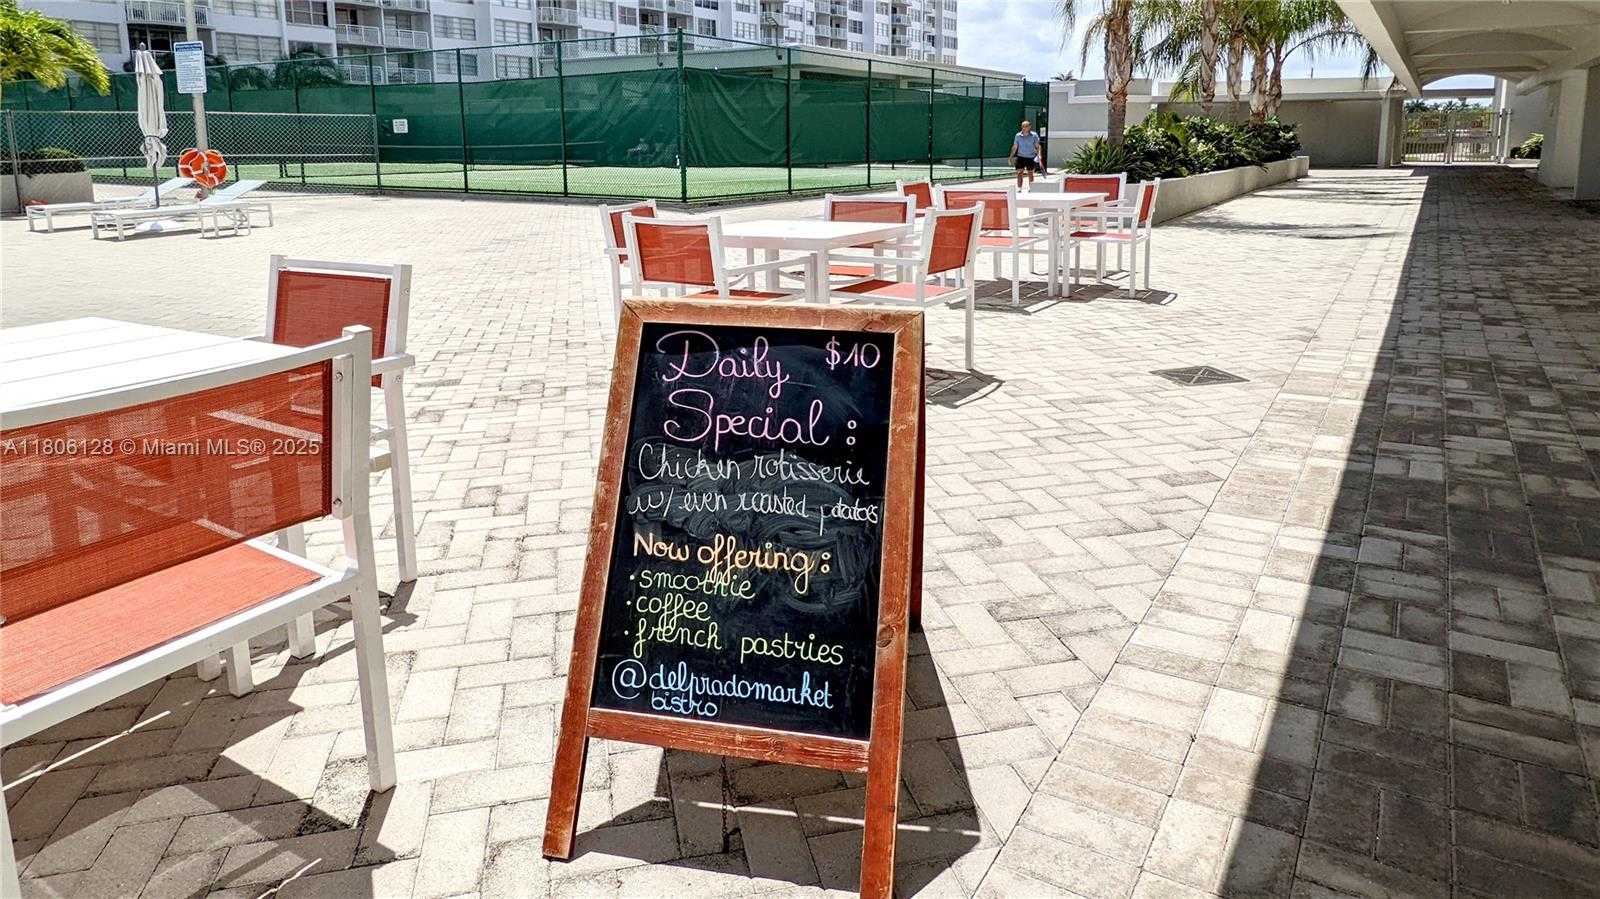 Daily $10
Special :
Chicken rotisserie
w/ even roasted potatoes
Now offering :
• smoothie
• coffee
• french pastries
@delpradomarket
bistro
A11806128 © Miami MLS® 2025